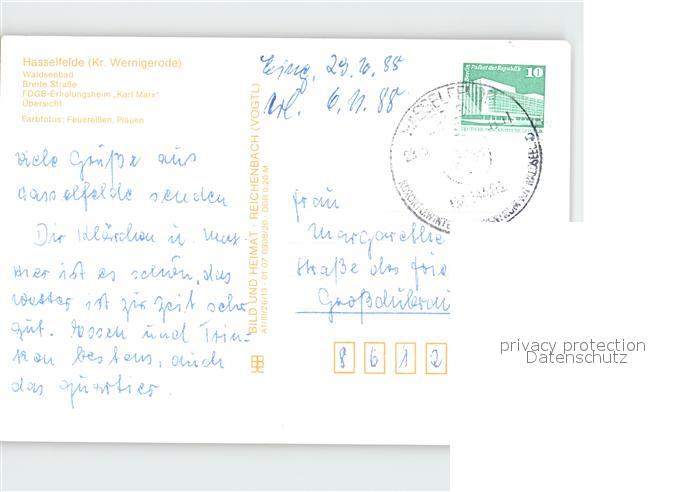 Hasselfelde (Kr. Wernigerode)
Waldseebad
Breite Straße
FDGB-Erholungsheim „Karl Marx"
Übersicht
Farbfotos: Feuereißen, Plauen
Eing. 29.10.85
6.11.85
viele Grüße aus
Hasselfelde senden
Dir Klärchen u. Max.
Hier ist es schön, das
Wetter ist zur Zeit sehr
gut. Essen und Trin-
ken bestens, auch
das Quartier.
BILD UND HEIMAT · REICHENBACH (VOGTL)
A1/III/26/13 01 07 0308/20 DDR 0,20 M
Palast der Republik
10
HASSELFELDE
Frau
Margarethe
Straße des Frie
Großdubrau
8 6 1 2
privacy protection
Datenschutz